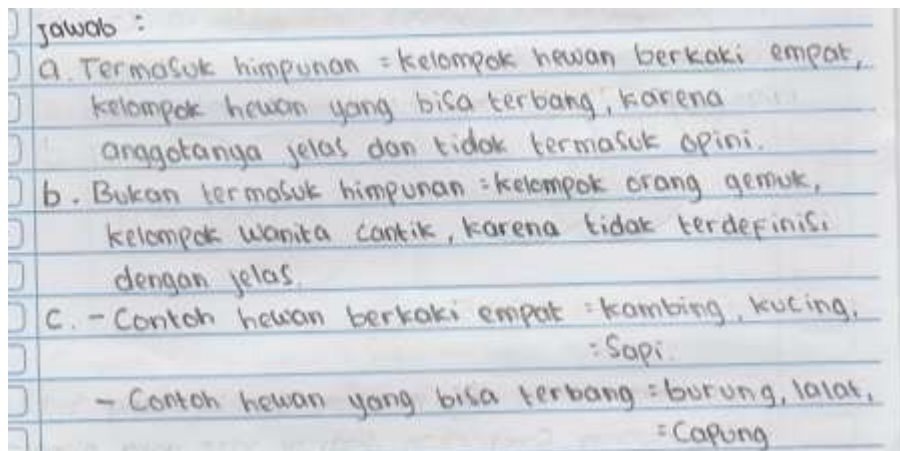 Jawab :
a. Termasuk himpunan = kelompok hewan berkaki empat,
kelompok hewan yang bisa terbang, karena
anggotanya jelas dan tidak termasuk opini.
b. Bukan termasuk himpunan = kelompok orang gemuk,
kelompok wanita cantik, karena tidak terdefinisi
dengan jelas.
C. - Contoh hewan berkaki empat = kambing, kucing,
= Sapi.
- Contoh hewan yang bisa terbang = burung, lalat,
= Capung